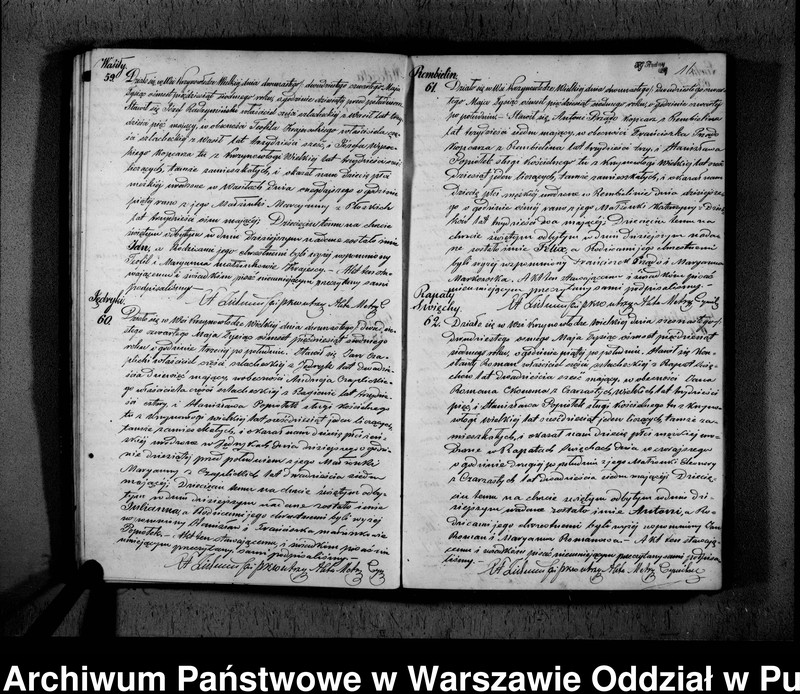 Wasiły
59. Działo się we Wsi Krzynowłodze Wielkiej dnia dwunastego/dwudziestego czwartego Maja
Tysiąc ośmset pięćdziesiąt siódmego roku, o godzinie dziewiątej przed południem
Stawił się Józef właściciel części szlacheckiej z Wasił lat trzy
dzieści pięć mający, w obecności Teofila Krajewskiego właściciela czę
ści szlacheckiej z Wasił lat trzydzieści sześć, i Józefa
kopczarza z Krzynowłogi Wielkiej lat
liczących, tamże zamieszkałych, i okazał nam Dziecię płci
męskiej urodzone w Wasiłach Dnia wczorajszego o godzinie
piątej rano z jego Małżonki Maryanny z
lat trzydzieści ośm mającej. Dziecięciu temu na chrzcie
świętym odbytym w dniu Dzisiejszym nadane zostało imie
Jan, a Rodzicami jego chrzestnemi byli wyżej wspomniony
Teofil i Maryanna małżonkowie – Akt ten sta
wającemu i świadkom pisać nieumiejącym przeczytany sami
podpisaliśmy. –
Akta Metry C
Jędryki
60. Działo się we Wsi Krzynowłodze Wielkiej dnia dwunastego/dwudzie
stego czwartego Maja Tysiąc ośmset pięćdziesiąt siódmego
roku o godzinie trzeciej po południu. Stawił się Jan Cza
plicki właściciel części szlacheckiej z Jędryk lat dwadzie
ścia dziewięć mający w obecności Czaplickie
go właściciela części szlacheckiej z lat trzydzie
ści cztery i Stanisława Popiołek sługi Kościelnego
tu z Krzynowłogi wielkiej lat sześćdziesiąt jeden liczących,
tamże zamieszkałych, i okazał nam dziecię płci żeń
skiej urodzone w Jędrykach dnia dzisiejszego o godzi
nie dziesiątej przed południem z jego Małżonki
Maryanny z Czaplickich lat dwadzieścia siedm
mającej. Dziecięciu temu na chrzcie świętym odby
tym w dniu dzisiejszym nadane zostało imie
Julianna, a Rodzicami jego chrzestnemi byli wyżej
wspomniony Stanisław i Franciszka małżonkowie
Popiołek. – Akt ten stawającemu i świadkom pisać nie
umiejącym przeczytany sami podpisaliśmy. –
Akta Metry Cyw
16
Rembielin
61. Działo się we Wsi Krzynowłodze Wielkiej dnia dwunastego/Dwudziestego czwar
tego Maja Tysiąc ośmset pięćdziesiąt siódmego roku, o godzinie czwartej
po południu. – Stawił się Antoni kopczarz z Rembielina
lat trzydzieści siedm mający, w obecności Franciszka
kopczarza z Rembielina lat trzydzieści trzy, i Stanisława
Popiołek sługi Kościelnego tu z Krzynowłogi Wielkiej lat sześć
dziesiąt jeden liczących, tamże zamieszkałych, i okazał nam
Dziecię płci męskiej urodzone w Rembielinie dnia dzisiejsze
go o godzinie ósmej rano z jego Małżonki Katarzyny z
lat trzydzieści dwa mającej. Dziecięciu temu na
chrzcie świętym odbytym w dniu dzisiejszym nada
ne zostało imie Felix, a Rodzicami jego chrzestnemi
byli wyżej wspomniony Franciszek i Maryanna
Akt ten stawającemu i świadkom pisać
nieumiejącym przeczytany sami podpisaliśmy. –
Akta Metry Cywilne
Rapaty
Żwięchy
62. Działo się we Wsi Krzynowłodze Wielkiej dnia
Dwudziestego ósmego Maja Tysiąc ośmset pięćdziesiąt
siódmego roku, o godzinie piątej po południu. Stawił się Kon
stanty Roman właściciel części szlacheckiej z Rapat Żwię
chów lat dwadzieścia sześć mający, w obecności Jana
Romana Ekonoma z Czarzastych Wielkich lat trzydzieści
pięć i Stanisława Popiołek sługi kościelnego tu z Krzyno
włogi wielkiej lat sześćdziesiąt jeden liczących, tamże za
mieszkałych, i okazał nam dziecię płci męzkiej uro
dzone w Rapatach Żwięchach Dnia wczorajszego
o godzinie Drugiej po południu z jego Małżonki
z Czarzastych lat dwadzieścia siedm mającej. Dziecię
ciu temu na chrzcie świętym odbytym w dniu dzi
siejszym nadane zostało imie Antoni, a Ro
dzicami jego chrzestnemi byli wyżej wspomniony Jan
Roman i Maryanna Romanowa. – Akt ten stawają
cemu i świadkom pisać nieumiejącym przeczytany sami podpisa
liśmy. –
Akta Metry Cywilne
Archiwum Państwowe w Warszawie Oddział w Pu